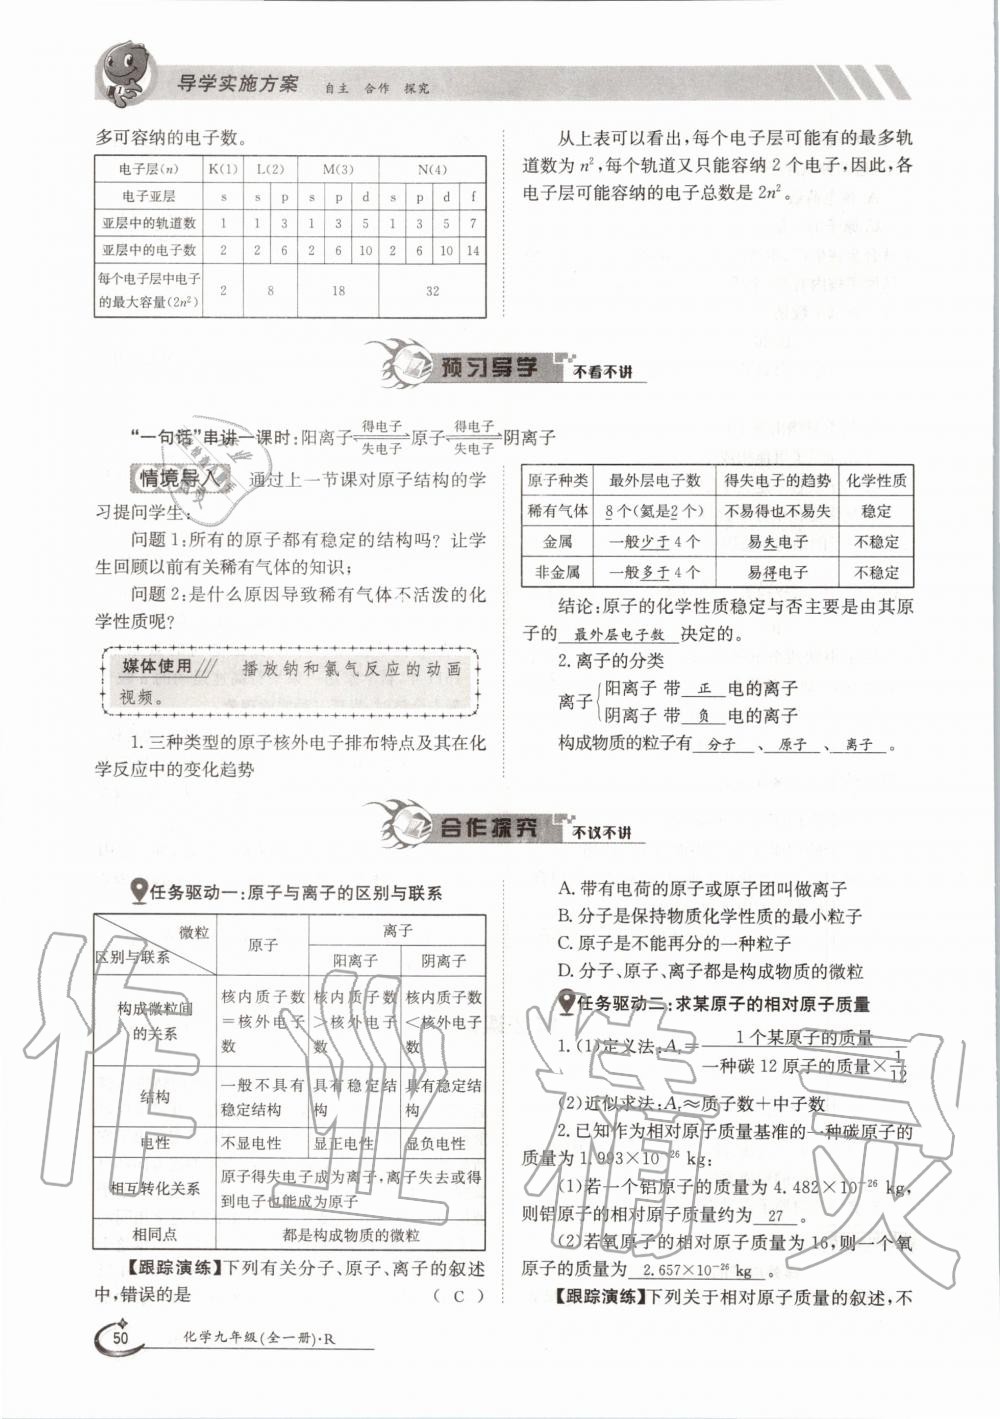 导学实施方案 自主 合作 探究
多可容纳的电子数。
电子层(n) K(1) L(2) M(3) N(4)
电子亚层 s s p s p d s p d f
亚层中的轨道数 1 1 3 1 3 5 1 3 5 7
亚层中的电子数 2 2 6 2 6 10 2 6 10 14
每个电子层中电子
的最大容量(2n²) 2 8 18 32
从上表可以看出,每个电子层可能有的最多轨
道数为 n²,每个轨道又只能容纳 2 个电子,因此,各
电子层可能容纳的电子总数是 2n²。
预习导学 不看不讲
“一句话”串讲一课时:阳离子 得电子 失电子 原子 得电子 失电子 阴离子
情境导入 通过上一节课对原子结构的学
习提问学生:
问题 1:所有的原子都有稳定的结构吗? 让学
生回顾以前有关稀有气体的知识;
问题 2:是什么原因导致稀有气体不活泼的化
学性质呢?
媒体使用 播放钠和氯气反应的动画
视频。
1.三种类型的原子核外电子排布特点及其在化
学反应中的变化趋势
原子种类 最外层电子数 得失电子的趋势 化学性质
稀有气体 8 个(氦是2 个) 不易得也不易失 稳定
金属 一般少于 4 个 易失电子 不稳定
非金属 一般多于 4 个 易得电子 不稳定
结论:原子的化学性质稳定与否主要是由其原
子的 最外层电子数 决定的。
2.离子的分类
离子 阳离子 带 正 电的离子
阴离子 带 负 电的离子
构成物质的粒子有 分子 、 原子 、 离子 。
合作探究 不议不讲
任务驱动一:原子与离子的区别与联系
微粒
区别与联系 原子 离子
阳离子 阴离子
构成微粒间
的关系
核内质子数
=核外电子
数
核内质子数
>核外电子
数
核内质子数
<核外电子
数
结构
一般不具有
稳定结构
具有稳定结
构
具有稳定结
构
电性 不显电性 显正电性 显负电性
相互转化关系
原子得失电子成为离子,离子失去或得
到电子也能成为原子
相同点 都是构成物质的微粒
【跟踪演练】下列有关分子、原子、离子的叙述
中,错误的是 ( C )
A.带有电荷的原子或原子团叫做离子
B.分子是保持物质化学性质的最小粒子
C.原子是不能再分的一种粒子
D.分子、原子、离子都是构成物质的微粒
任务驱动二:求某原子的相对原子质量
1.(1)定义法:Ar= 1 个某原子的质量
一种碳 12 原子的质量×1/12
(2)近似求法:Ar≈质子数+中子数
2.已知作为相对原子质量基准的一种碳原子的
质量为 1.993×10⁻²⁶ kg:
(1)若一个铝原子的质量为 4.482×10⁻²⁶ kg,
则铝原子的相对原子质量约为 27 。
(2)若氧原子的相对原子质量为 16,则一个氧
原子的质量为 2.657×10⁻²⁶ kg 。
【跟踪演练】下列关于相对原子质量的叙述,不
50 化学九年级(全一册)·R
作业精灵